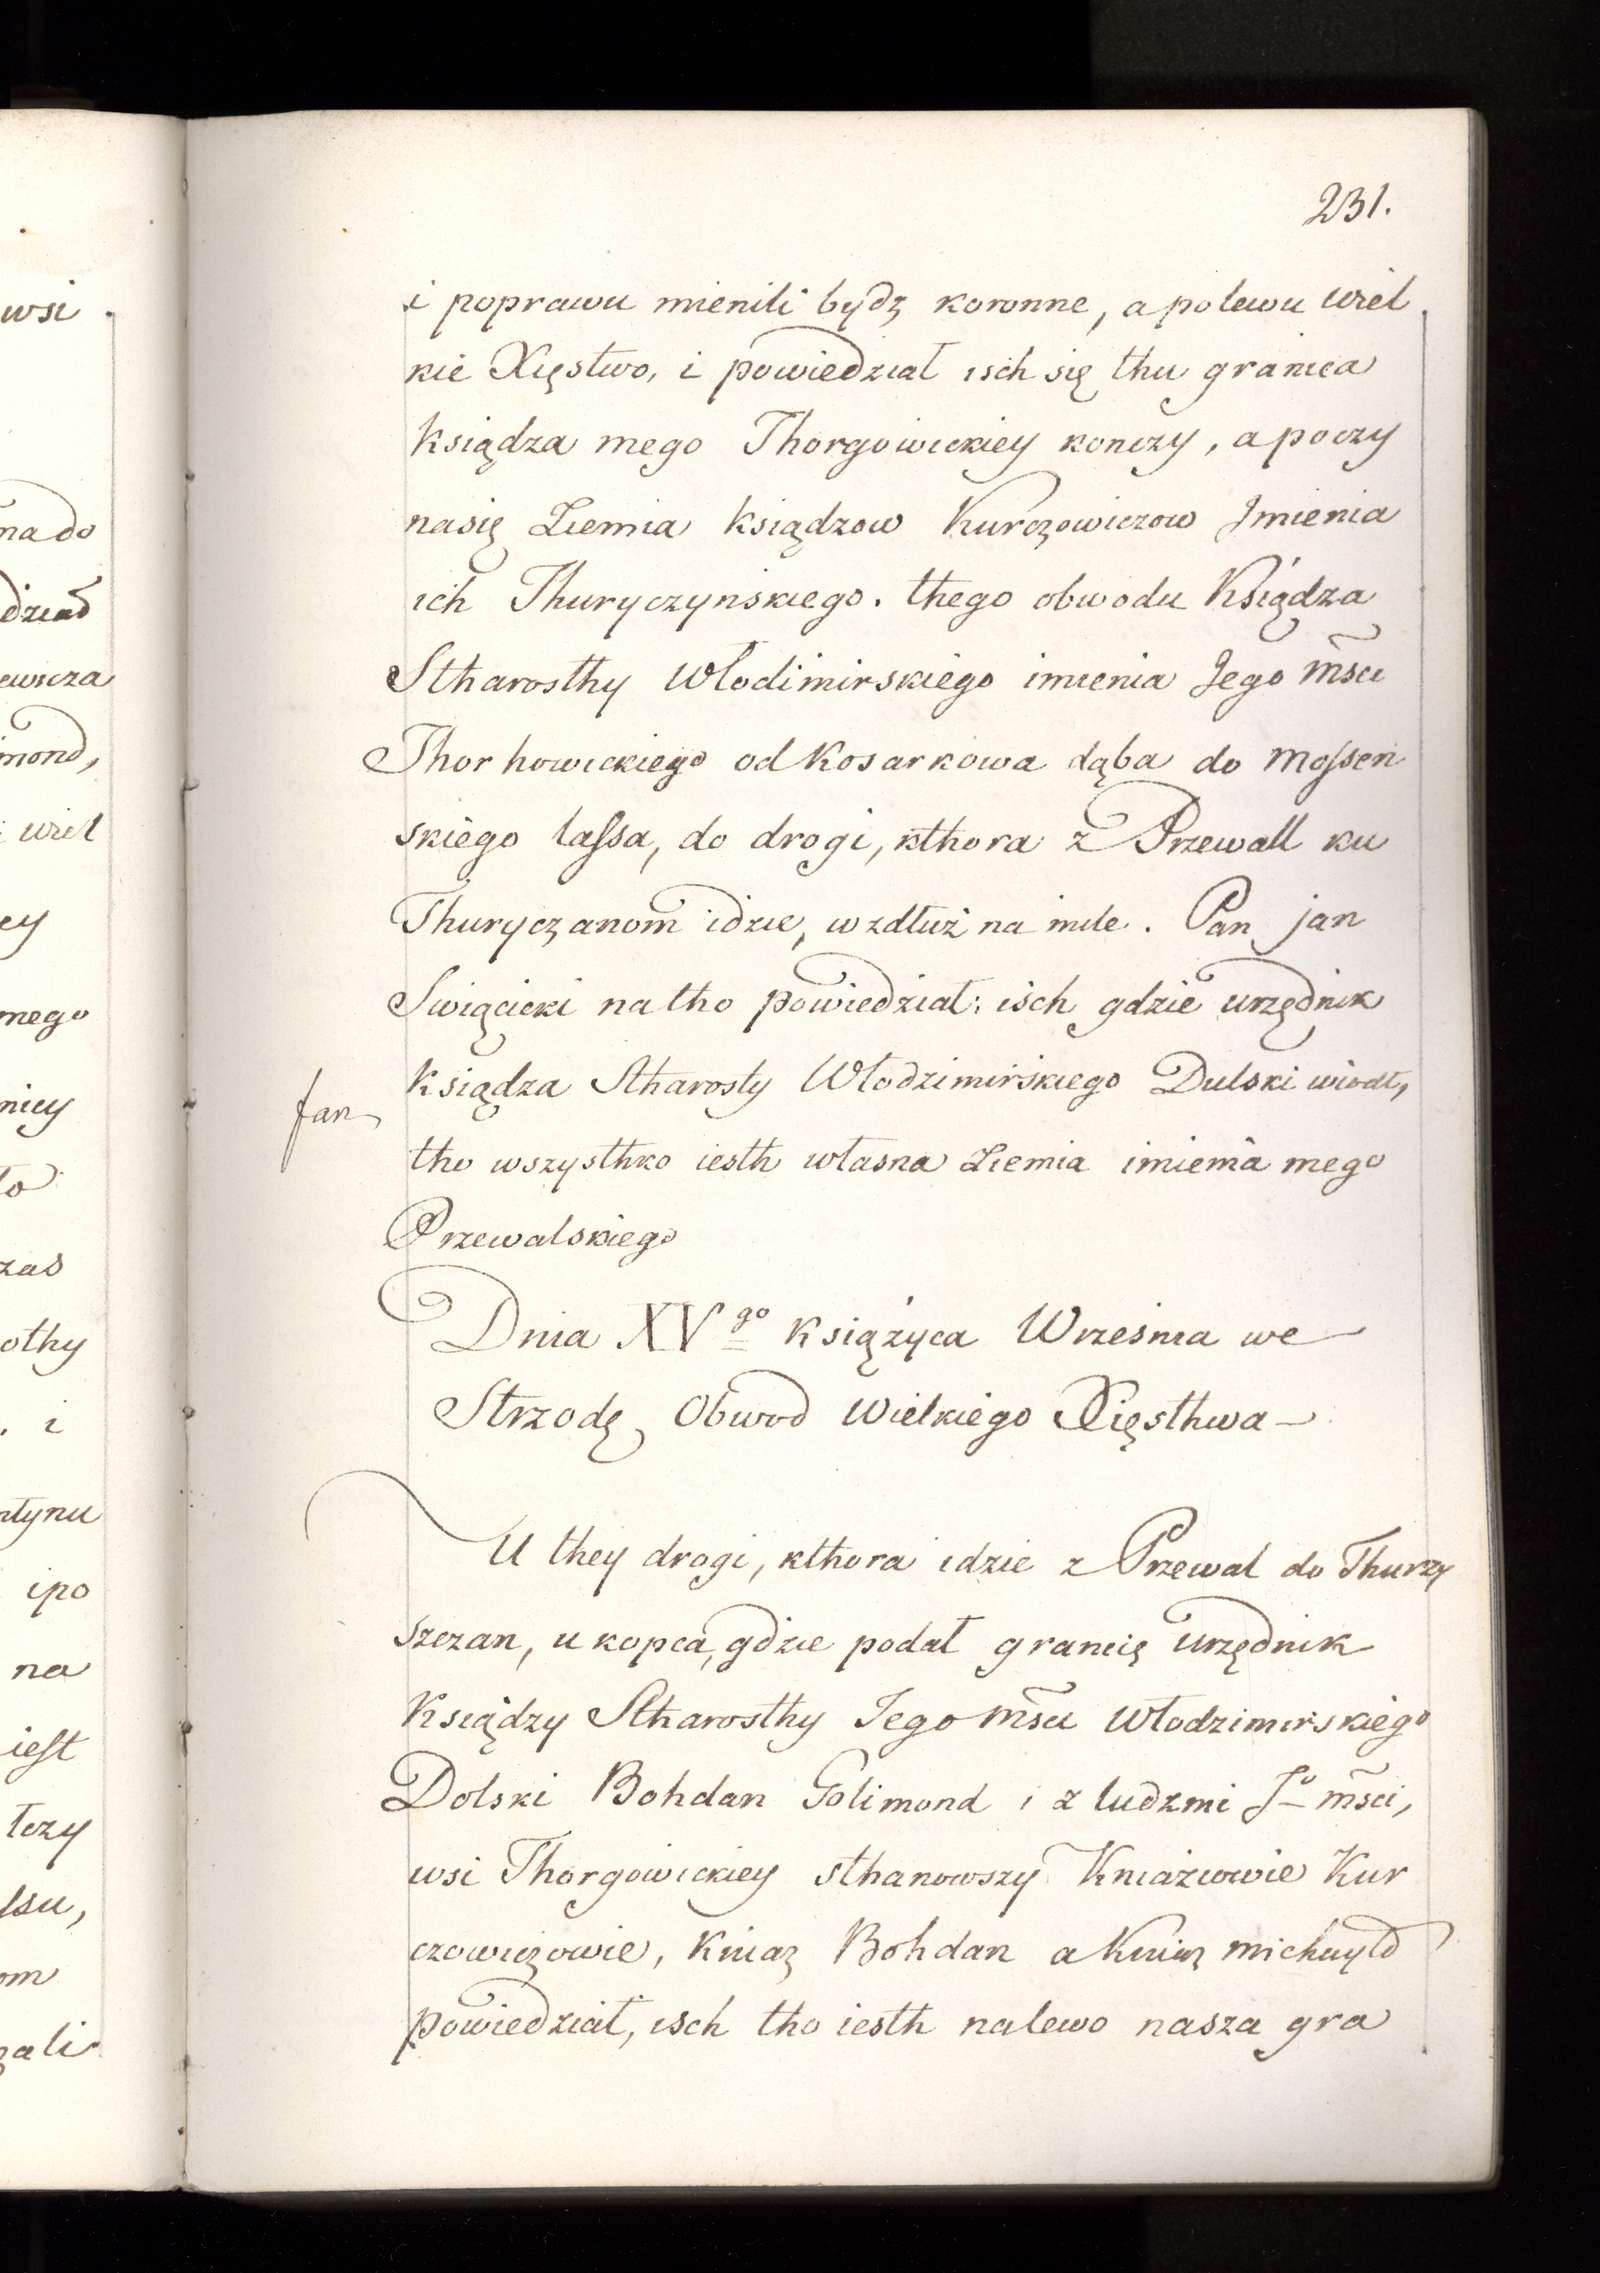 231.
i poprawu mienili bydz koronne, a polewu wiel
kie Xięstwo, i powiedział isch się thu granica
księdza mego Thorgowickiey konczy, a poczy
nasię Ziemia Książdzow Kurczowiczow Imienia
ich Thuryczynskiego. thego obwodu Książdza
Stharosthy Włodimirskiego imienia Jego Mści
Thorhowickiego od Kosarkowa dąba do Mossen
skiego lassa, do drogi, kthora z Przewall ku
Thuryczanom idzie, wzdłuż na mile. Pan jan
Swięcicki na tho powiedział: isch gdzie urzędnik
Książdza Stharosty Włodzimirskiego Dulski wiodł,
Jan
tho wszysthko iesth własna Ziemia imienia mego
Przewalskiego
Dnia XVgo książyca Wrzesnia we
Strzodę Obwod Wielkiego Xięsthwa
U they drogi, kthora idzie z Przewal do Thurzy
szczan, u kopca, gdzie podał granicę urzędnik
Książdzy Stharosthy Jego Mści Włodzimirskiego
Dolski Bohdan Golimond i z ludzmi Jo mści,
wsi Thorgowickiey sthanowszy Kniaziowie Kur
czowiczowie, Kniaz Bohdan a Kniaz
powiedział, isch tho iesth nalewo nasza gra
wsi
na do
dział
ewicza
mond,
wiel
ey
mego
nicy
to
zas
othy
i
ipo
na
iest
tczy
ssu,
om
zali